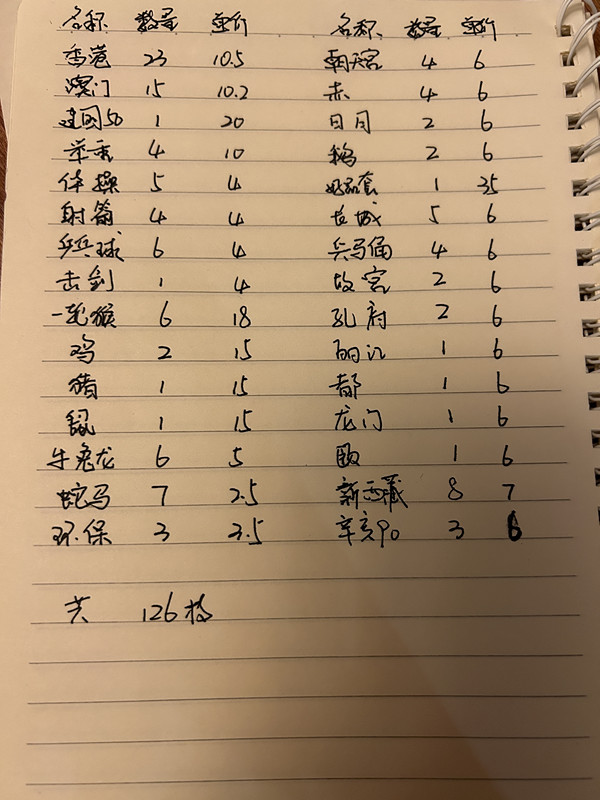 名称 数量 单价 名称 数量 单价
香港 23 10.5 朝天宫 4 6
澳门 15 10.2 赤 4 6
建国50 1 20 日月 2 6
举重 4 10 鹮 2 6
体操 5 4 套 1 35
射箭 4 4 长城 5 6
乒乓球 6 4 兵马俑 4 6
击剑 1 4 故宫 2 6
一轮猴 6 18 孔府 2 6
鸡 2 15 丽江 1 6
猪 1 15 都 1 6
鼠 1 15 龙门 1 6
牛兔龙 6 5 1 6
蛇马 7 2.5 新西藏 8 7
环保 3 3.5 辛亥90 3 6
共 126枚